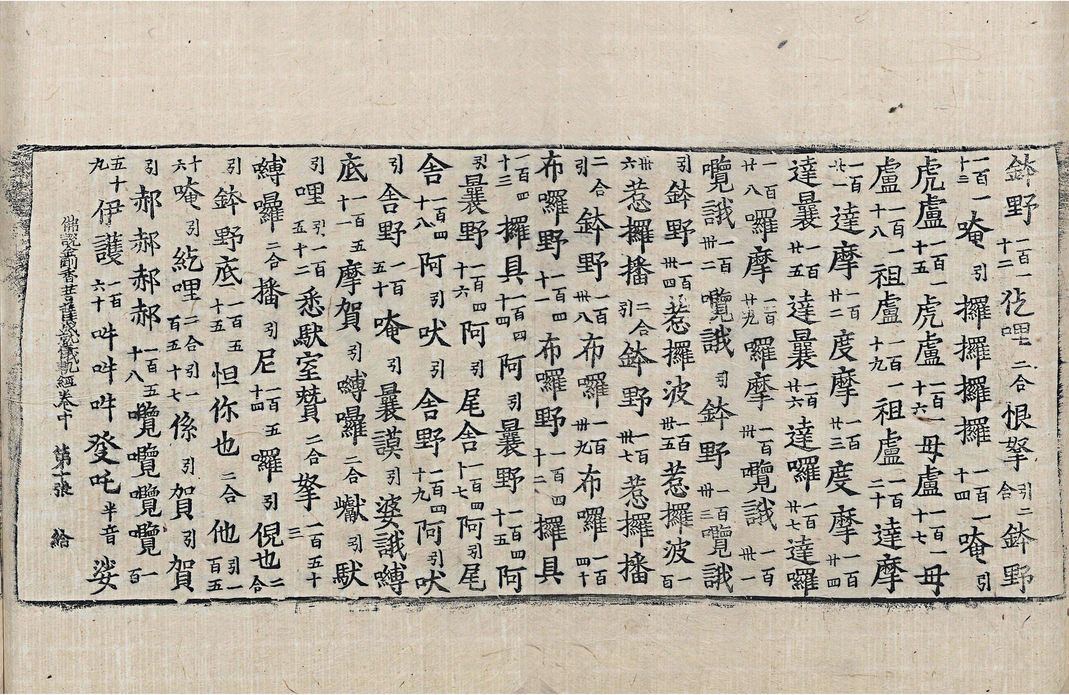 鉢野一百一十二佉哩二合恨拏引二合鉢野
一百一十三唵引攞攞攞攞一百一十四唵引
虎盧一百一十五虎盧一百一十六母盧一百一十七母
盧一百一十八祖盧一百一十九祖盧一百二十達摩
一百廿一達摩一百廿二度摩一百廿三度摩一百廿四
達曩一百廿五達曩一百廿六達囉一百廿七達囉
一百廿八囉摩一百廿九囉摩一百囕誐一百卅一
囕誐一百卅二囕誐引鉢野一百卅三囕誐
引鉢野一百卅四惹攞波一百卅五惹攞波一百
卅六惹攞播二合引鉢野一百卅七惹攞播
二合引鉢野一百卅八布囉一百卅九布囉一百四十
布囉野一百四十一布囉野一百四十二攞具
一百四十三攞具一百四十四阿引曩野一百四十五阿
引曩野一百四十六阿引尾舍一百四十七阿引尾
舍一百四十八阿引吠引舍野一百四十九阿引吠
引舍野一百五十唵引曩謨引婆誐嚩
底一百五十一摩賀引嚩囉二合巘引馱
引哩引一百五十二悉馱室贊二合拏一百五十三
嚩囉二合播引尼一百五十四囉引倪也二合
引鉢野底一百五十五怛你也二合他引一百五
十六唵引紇哩二合引一百五十七係引賀引賀
引郝郝郝郝一百五十八囕囕囕囕一百
五十九伊護一百六十吽吽吽發吒半音娑
佛說金剛香菩薩成就儀軌經卷中 張 給